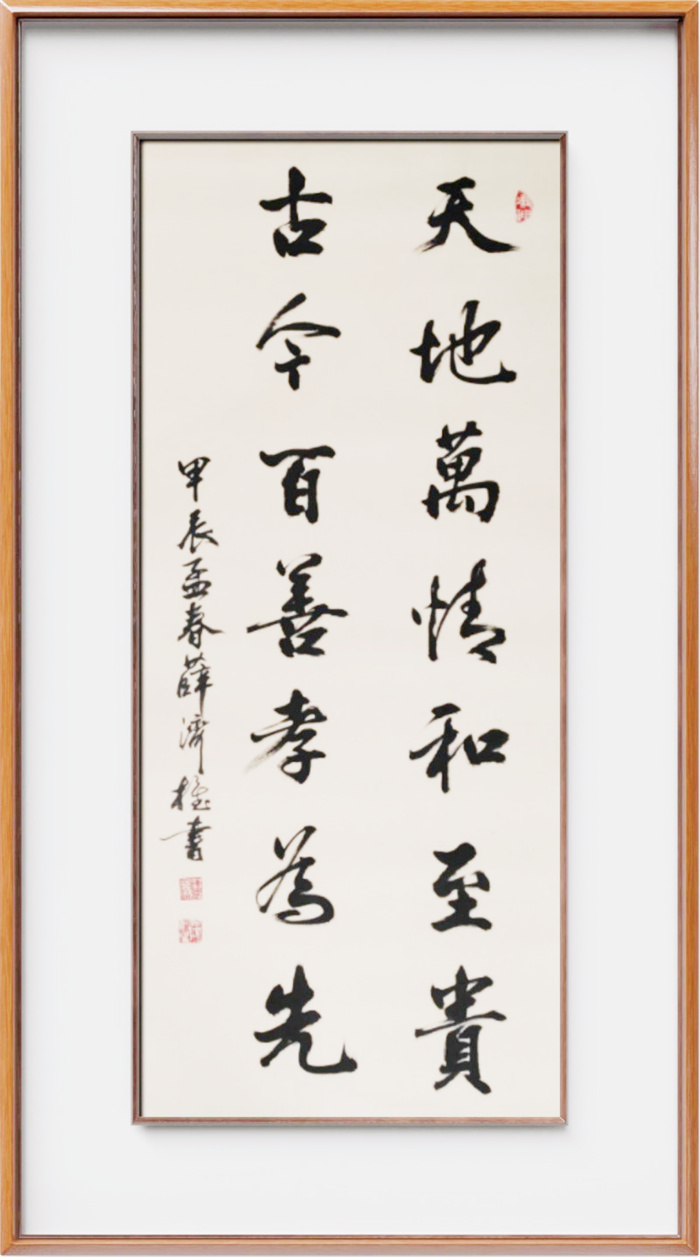 天地萬情和至貴
古今百善孝為先
甲辰孟春薛濟桓書